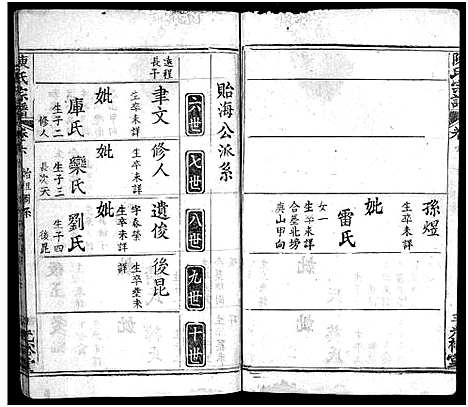 陳氏宗譜
孫煜
生卒未詳
妣
雷氏
女一
生卒未詳
合葬北塝
庚山甲向
貽海公派系
六世
七世
八世
九世
十世
遠程
長子
聿文
生卒未詳
妣
庫氏
生子二
修人
修人
生卒未詳
妣
欒氏
生子三
長次夭
遺俊
字春榮
生卒未詳
妣
劉氏
生子四
後昆
後昆
生卒塟未
詳
陳氏宗譜